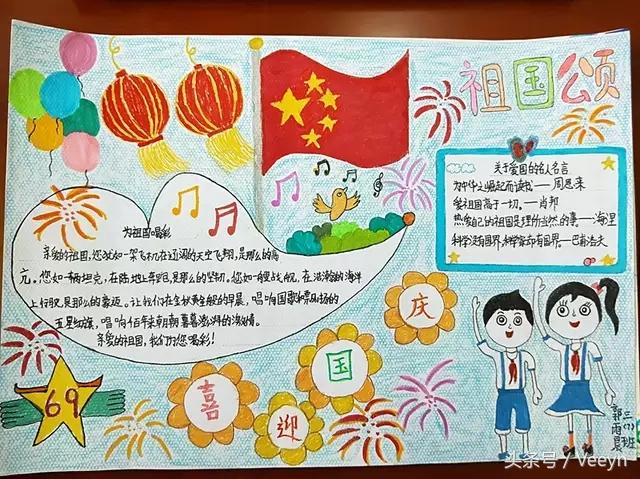 祖国颂
关于爱国的名人名言
为中华之崛起而读书——周恩来
爱祖国高于一切。——肖邦
热爱自己的祖国是理所当然的事——海涅
科学没有国界,科学家却有国界——巴甫洛夫
为祖国喝彩
亲爱的祖国,您犹如一架飞机在辽阔的天空飞翔,是那么的高
亢。您如一辆坦克,在陆地上是那么的坚韧。您如一艘战舰,在浩瀚的海洋
上行驶,是那么的豪迈。让我们在金秋季节的早晨,唱响国歌
五星红旗,唱响百年来朝朝暮暮澎湃的激情。
亲爱的祖国,我们为您喝彩!
喜迎国庆
69
三(1)班
郭雨
头条号 / Veeyn